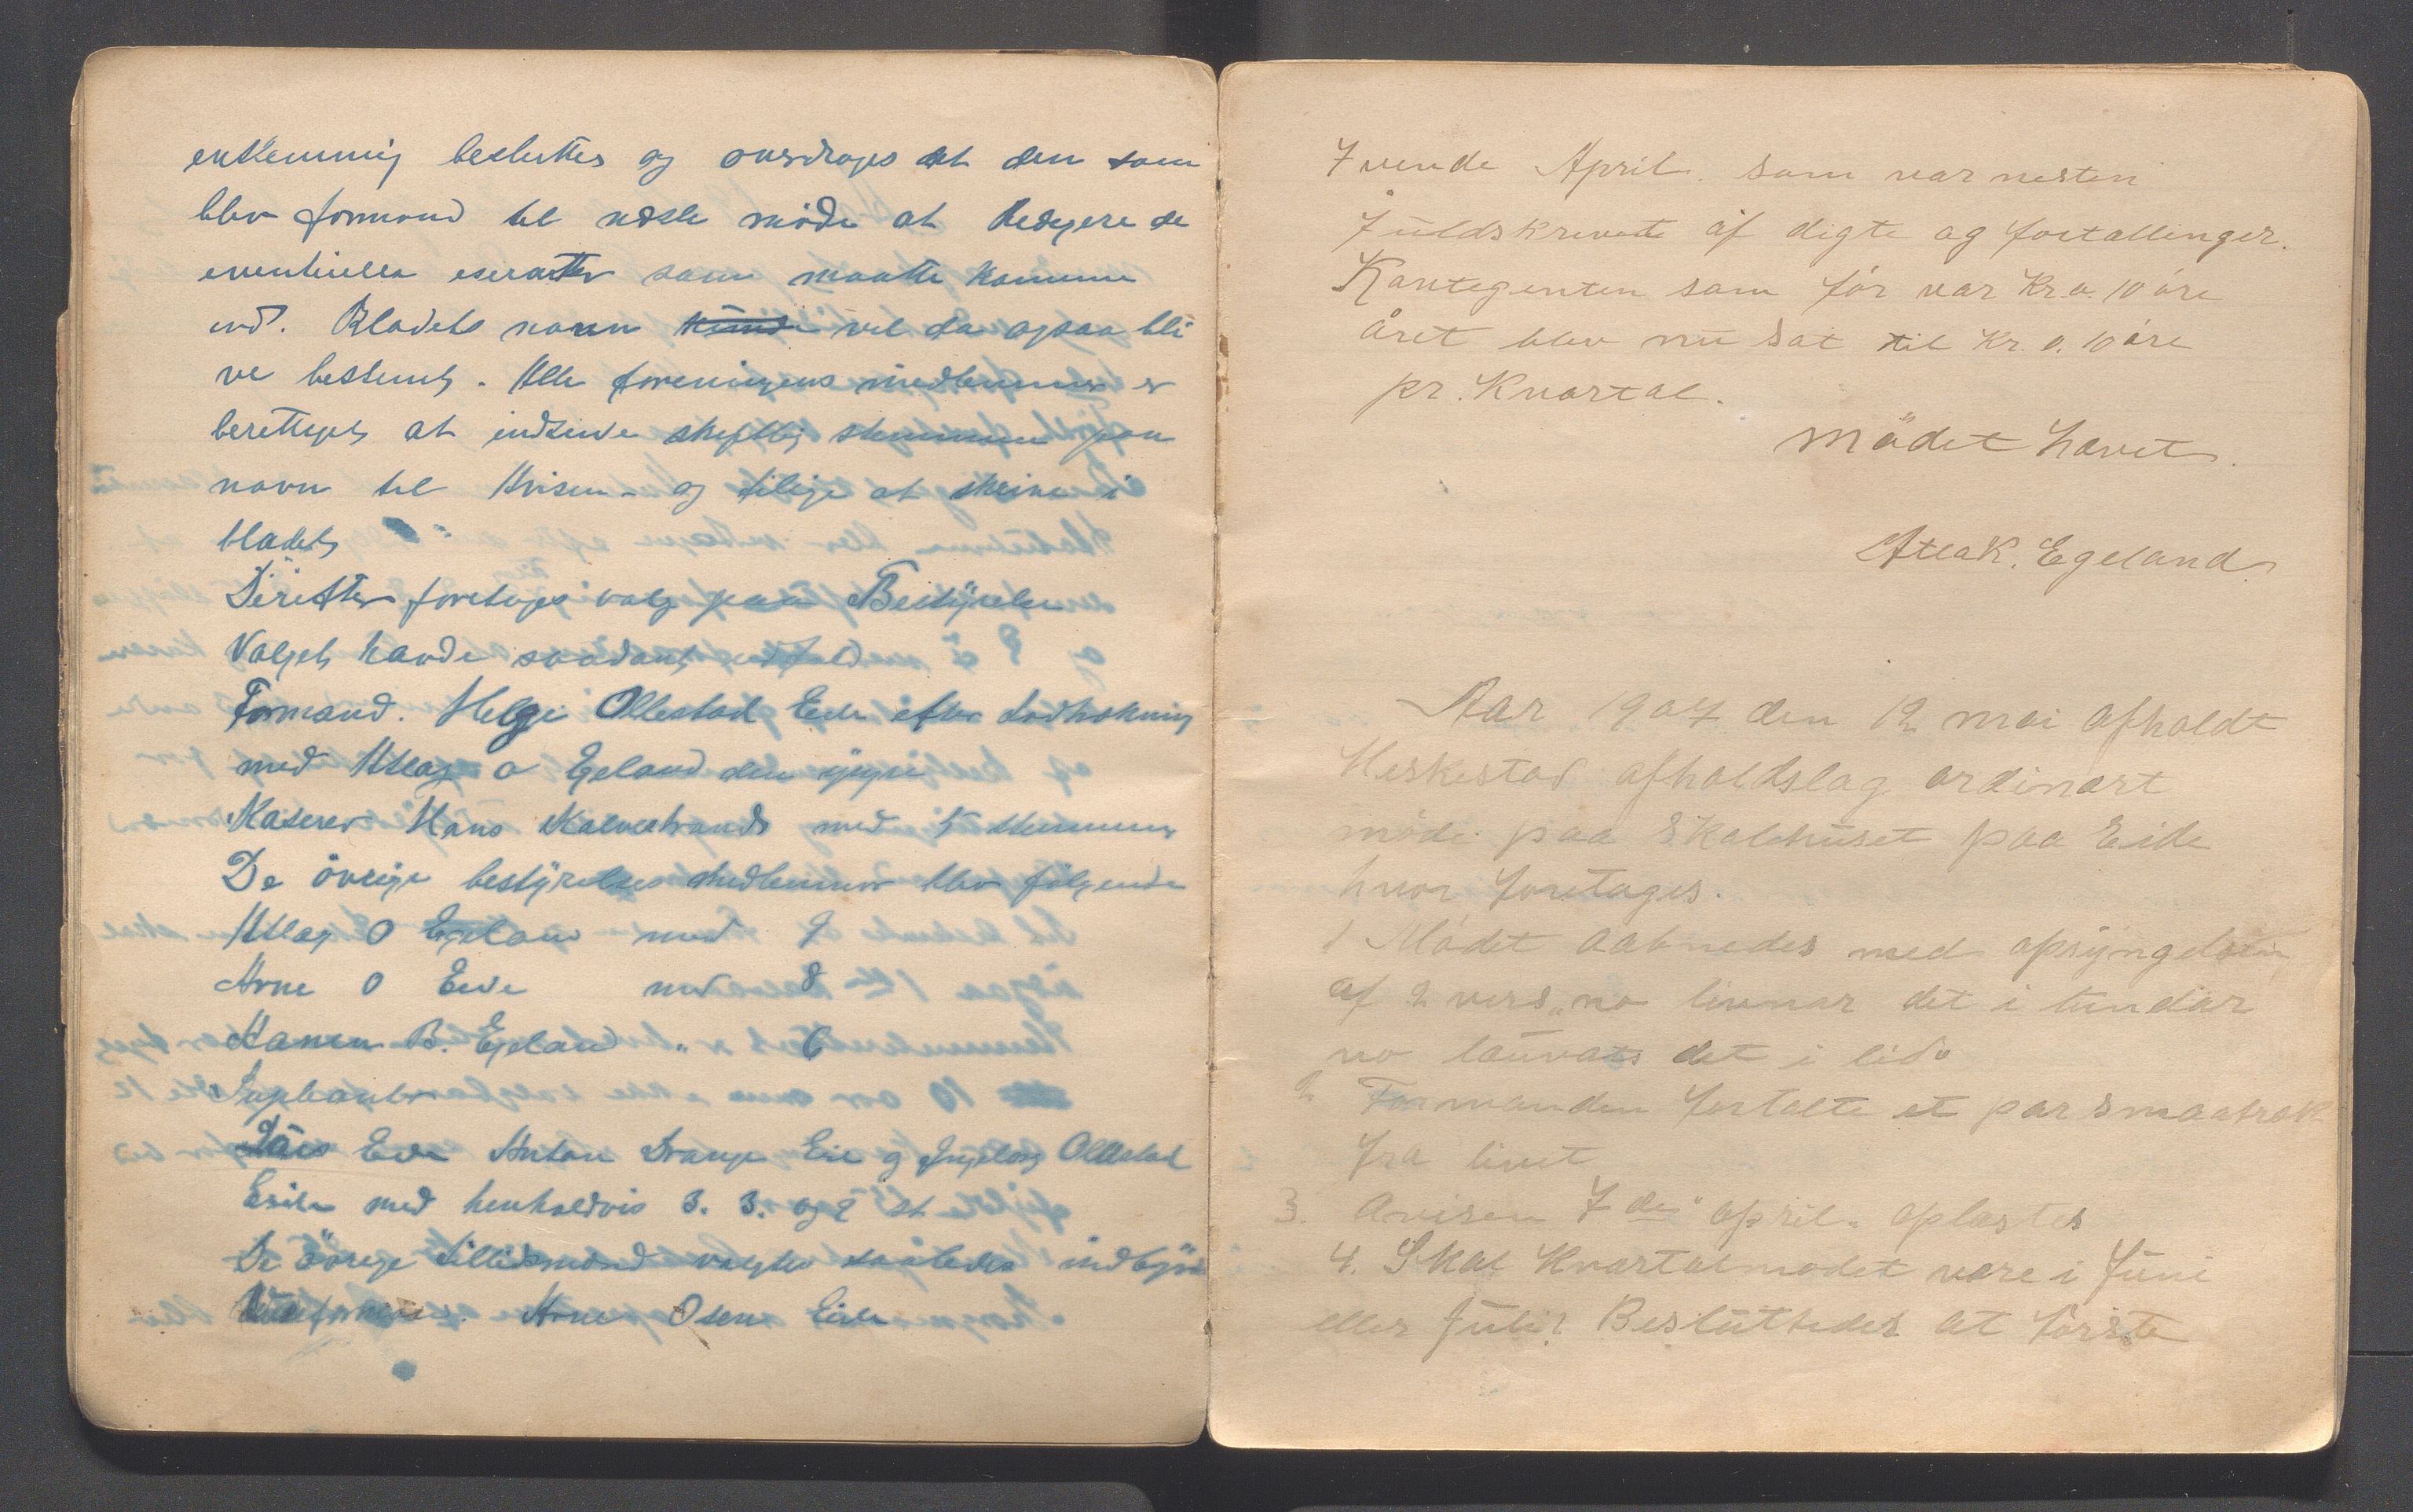 enstemmig besluttes og overdroges at den som
blev formand til næste møde at Redigere de
eventuelle eserater som maatte komme
ind. Bladets navn kunde vil da ogsaa bli
ve bestemt. Alle foreningens medlemmer er
berettiget at indsende skriftlig stemmer paa
navn til Avisen - og tilige at skrive i
bladet
Derefter foretoges valg paa Bestÿrelse
Valget havde saadant udfald
Formand. Helge Ollestad Eide efter Lodtrækning
med Atlag O Egeland den yngre
Kaserer Hans Kalvetrands med 5 stemmer
De övrige bestÿrelses medlemmer blev fölgende
Atlag O Egeland med 9
Arne O Eide med 8
Hanen B. Egeland „ 6
Supleanter
Lars Eide Anton Drange Eie og Ingeborg Ollestad
Eide med henholdvis 3. 3. og 2 st
De övrige tillidsmænd valgtes saaledes
Viseformand. Arne Osen Eide
7vende April. som var nesten
fuldskrevet af digte og fortællinger.
Kontegenten som før var Kr. 0. 10 øre
året blev nu sat til Kr. 0. 10 øre
pr. Kvartal.
Mödet hævet.
Atlak. Egeland.
Aar 1907 den 12 mai afholdt
Heskestad afholdslag ordinært
møde paa Skolehuset paa Eide
hvor foretages.
1 Mödet aabnedes med opsyngelsen
af 2 vers „no livnar det i lundar
no lauvast det i lid"
2 Formanden fortalte et par smaatræk
fra livet
3. Avisen 7de" april. oplæstes
4. Skal Kvartalmødet være i Juni
eller Juli? Besluttedes at første